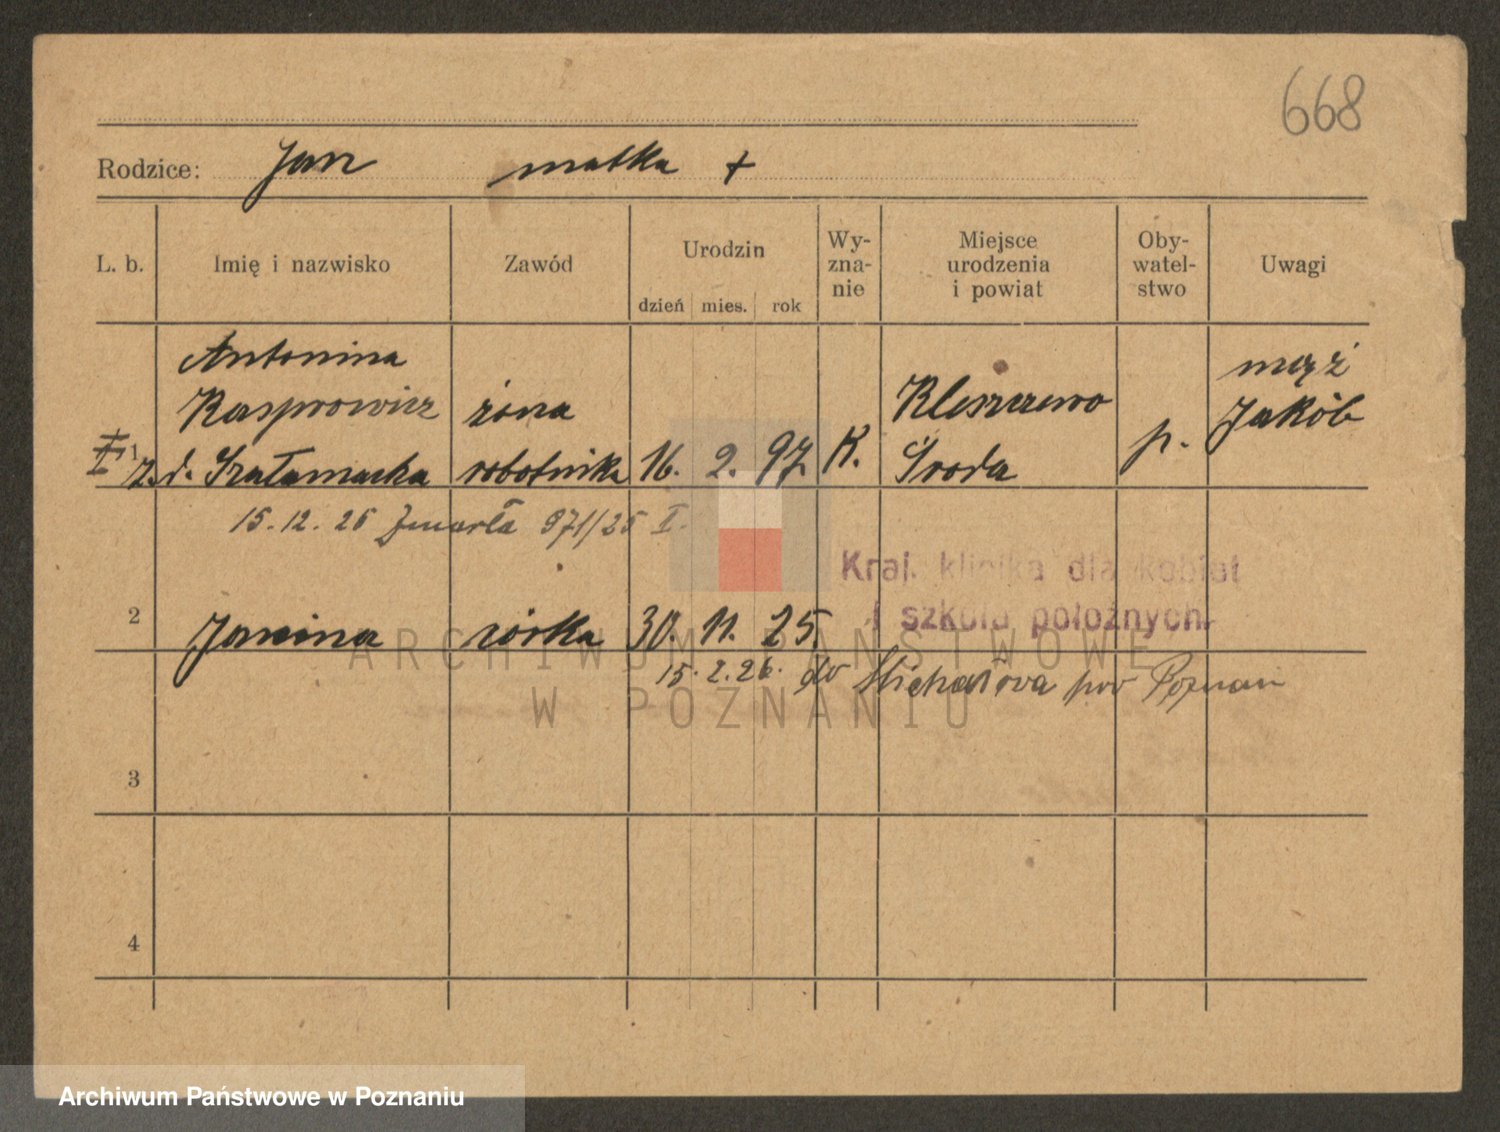 668
Rodzice: Jan matka +
L. b. Imię i nazwisko Zawód Urodzin dzień mies. rok Wy-zna-nie Miejsce urodzenia i powiat Oby-watel-stwo Uwagi
Antonina
Kasprowicz żona Kleszczewo mąż Jakób
1 z.d. Szałamacka robotnika 16. 2. 97. K. Środa p.
15.12.25 Zmarła 971/25 I.
Kraj. klinika dla kobiet
i szkoła położnych.
2 Janina córka 30. 11. 25.
15.2.26. do pow Poznań
3
4
ARCHIWUM PAŃSTWOWE
W POZNANIU
Archiwum Państwowe w Poznaniu